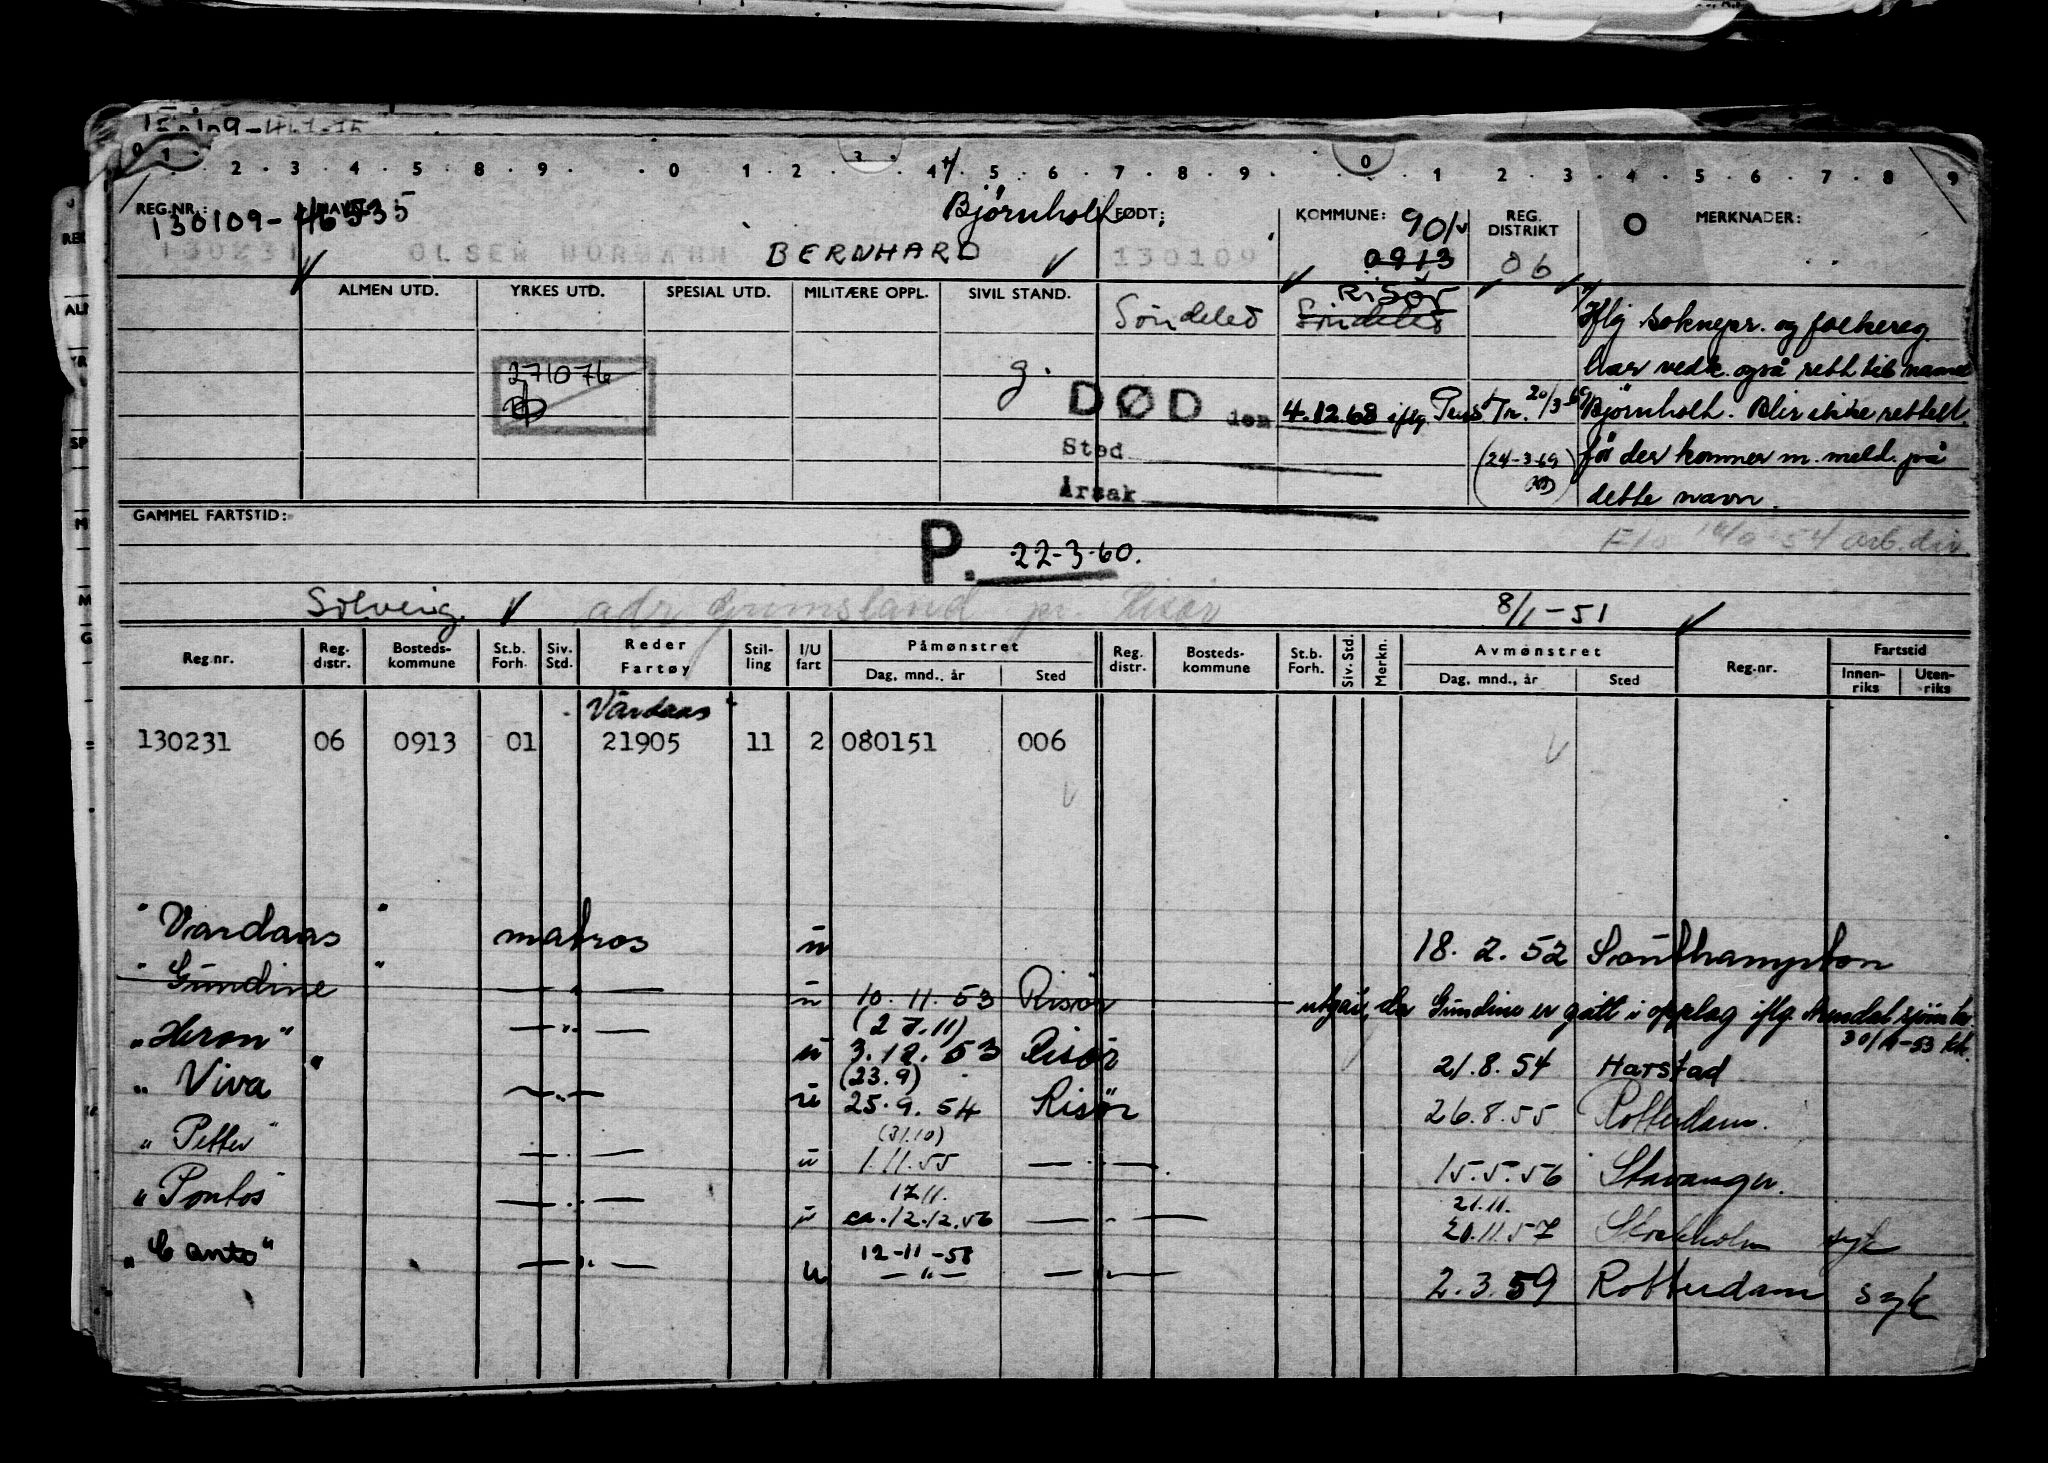 1 . 2 . 3 . 4 . 5 . 8 . 9 . 0 . 1 . 2 3 . 4 . 5 . 6 . 7 . 8 . 9 . 0 . 1 . 2 . 3 . 4 . 5 . 6 . 7 . 8 . 9
Bjørnholt
REG.NR.: NAVN: FØDT: KOMMUNE: 901 REG. DISTRIKT O MERKNADER:
130109-46535
130231 OLSEN NORMANN BERNHARD 130109 0913 06
ALMEN UTD. YRKES UTD. SPESIAL UTD. MILITÆRE OPPL. SIVIL STAND. Søndeled Risør Søndeled
Iflg soknepr. og folkereg.
271076 g. har vedk. også rett til navnet
DØD den 4.12.68 iflg. Pens.Tr. 20/3-69 Bjørnholt. Blir ikke rettet
Sted (24-3-69) før der kommer m. meld. på
Årsak dette navn.
GAMMEL FARTSTID: 54 arb.
P. 22-3-60.
Solveig adr Grimsland pr. Risør 8/1-51
Reg.nr. Reg. distr. Bosteds- kommune St.b. Forh. Siv. Std. Reder Fartøy Stil- ling I/U fart Påmønstret Dag, mnd., år Sted Reg. distr. Bosteds- kommune St.b. Forh. Siv. Std. Merkn. Avmønstret Dag, mnd., år Sted Reg.nr. Fartstid Innen- riks Uten- riks
"Vardaas"
130231 06 0913 01 21905 11 2 080151 006
"Vardaas" matros u 18.2.52 Southampton
"Gundine" — " — u 10.11.53 Risør utgår, da Gundine er gått i opplag iflg. Arendal sjøm.k.
"Heron" — " — u (27.11) 3.12.53 Risør 21.8.54 Harstad
"Viva" — " — u (23.9) 25.9.54 Risør 26.8.55 Rotterdam.
"Petter" — " — u (31.10) 1.11.55 — " — 15.5.56 Stavanger.
"Pontos" — " — u 17.11. ca.12.12.56 — " — 21.11. 20.11.57 Stockholm syk
"Canto" — " — u 12-11-58 — " — — " — 2.3.59 Rotterdam syk